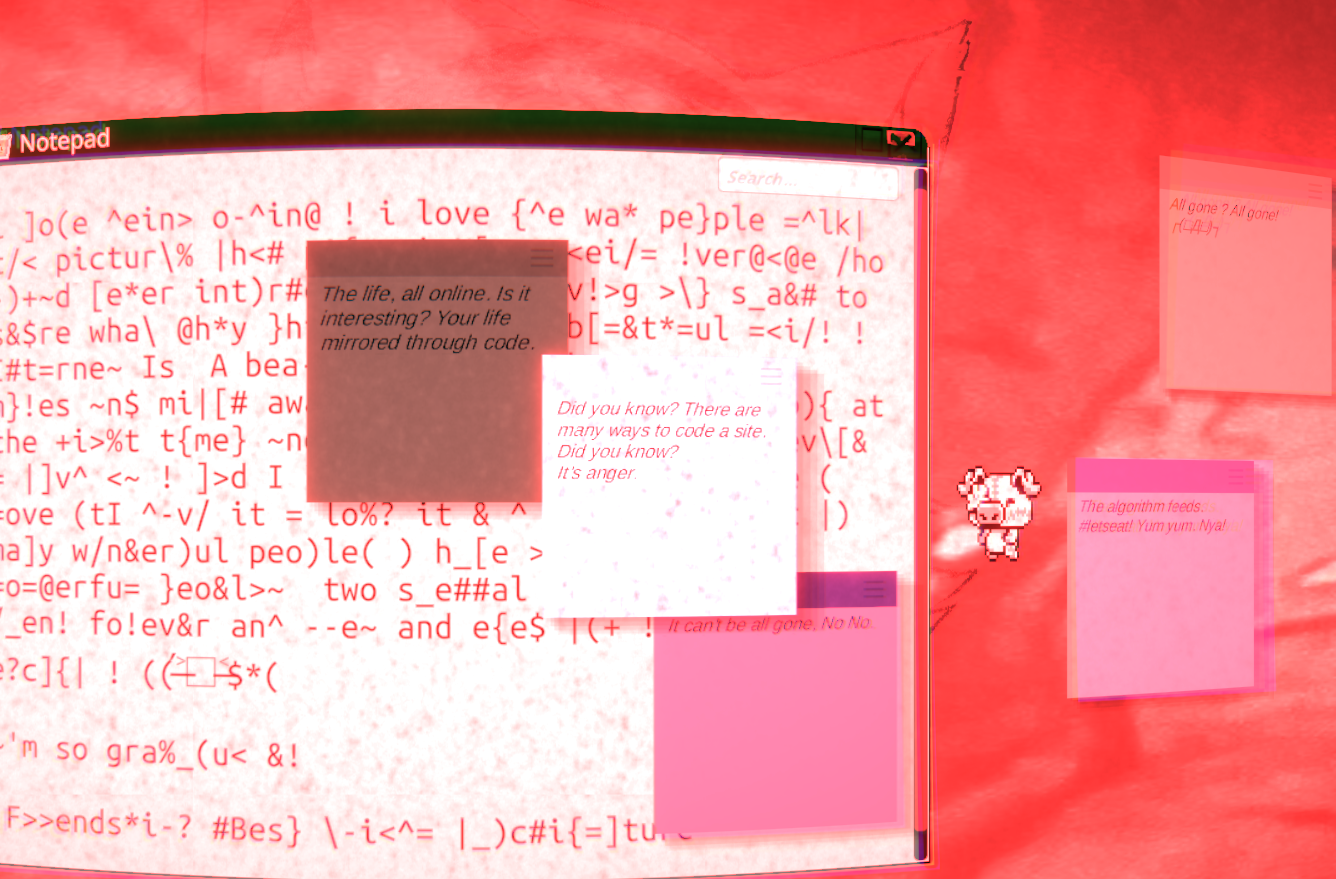 Notepad
Search...
]o(e ^ein> o-^in@ ! i love {^e wa* pe}ple =^lk|
:/< pictur\% |h<# <ei/= !ver@<@e /ho
)+~d [e*er int)r# v!>g >\} s_a&# to
s&$re wha\ @h*y }h b[=&t*=ul =<i/! !
[#t=rne~ Is A bea
n}!es ~n$ mi|[# aw ){ at
che +i>%t t{me} ~n ev\[&
= |]v^ <~ ! ]>d I (
=ove (tI ^-v/ it = lo%? it & ^ |)
na]y w/n&er)ul peo)le( ) h_[e >
=o=@erfu= }eo&l>~ two s_e##al
/_en! fo!ev&r an^ --e~ and e{e$ |(+ !
e?c]{| ! (( $*(
~'m so gra%_(u< &!
F>>ends*i-? #Bes} \-i<^= |_)c#i{=]ture
The life, all online. Is it
interesting? Your life
mirrored through code.
Did you know? There are
many ways to code a site.
Did you know?
It's anger.
It can't be all gone. No No.
All gone ? All gone!
The algorithm feeds.
#letseat! Yum yum. Nya!